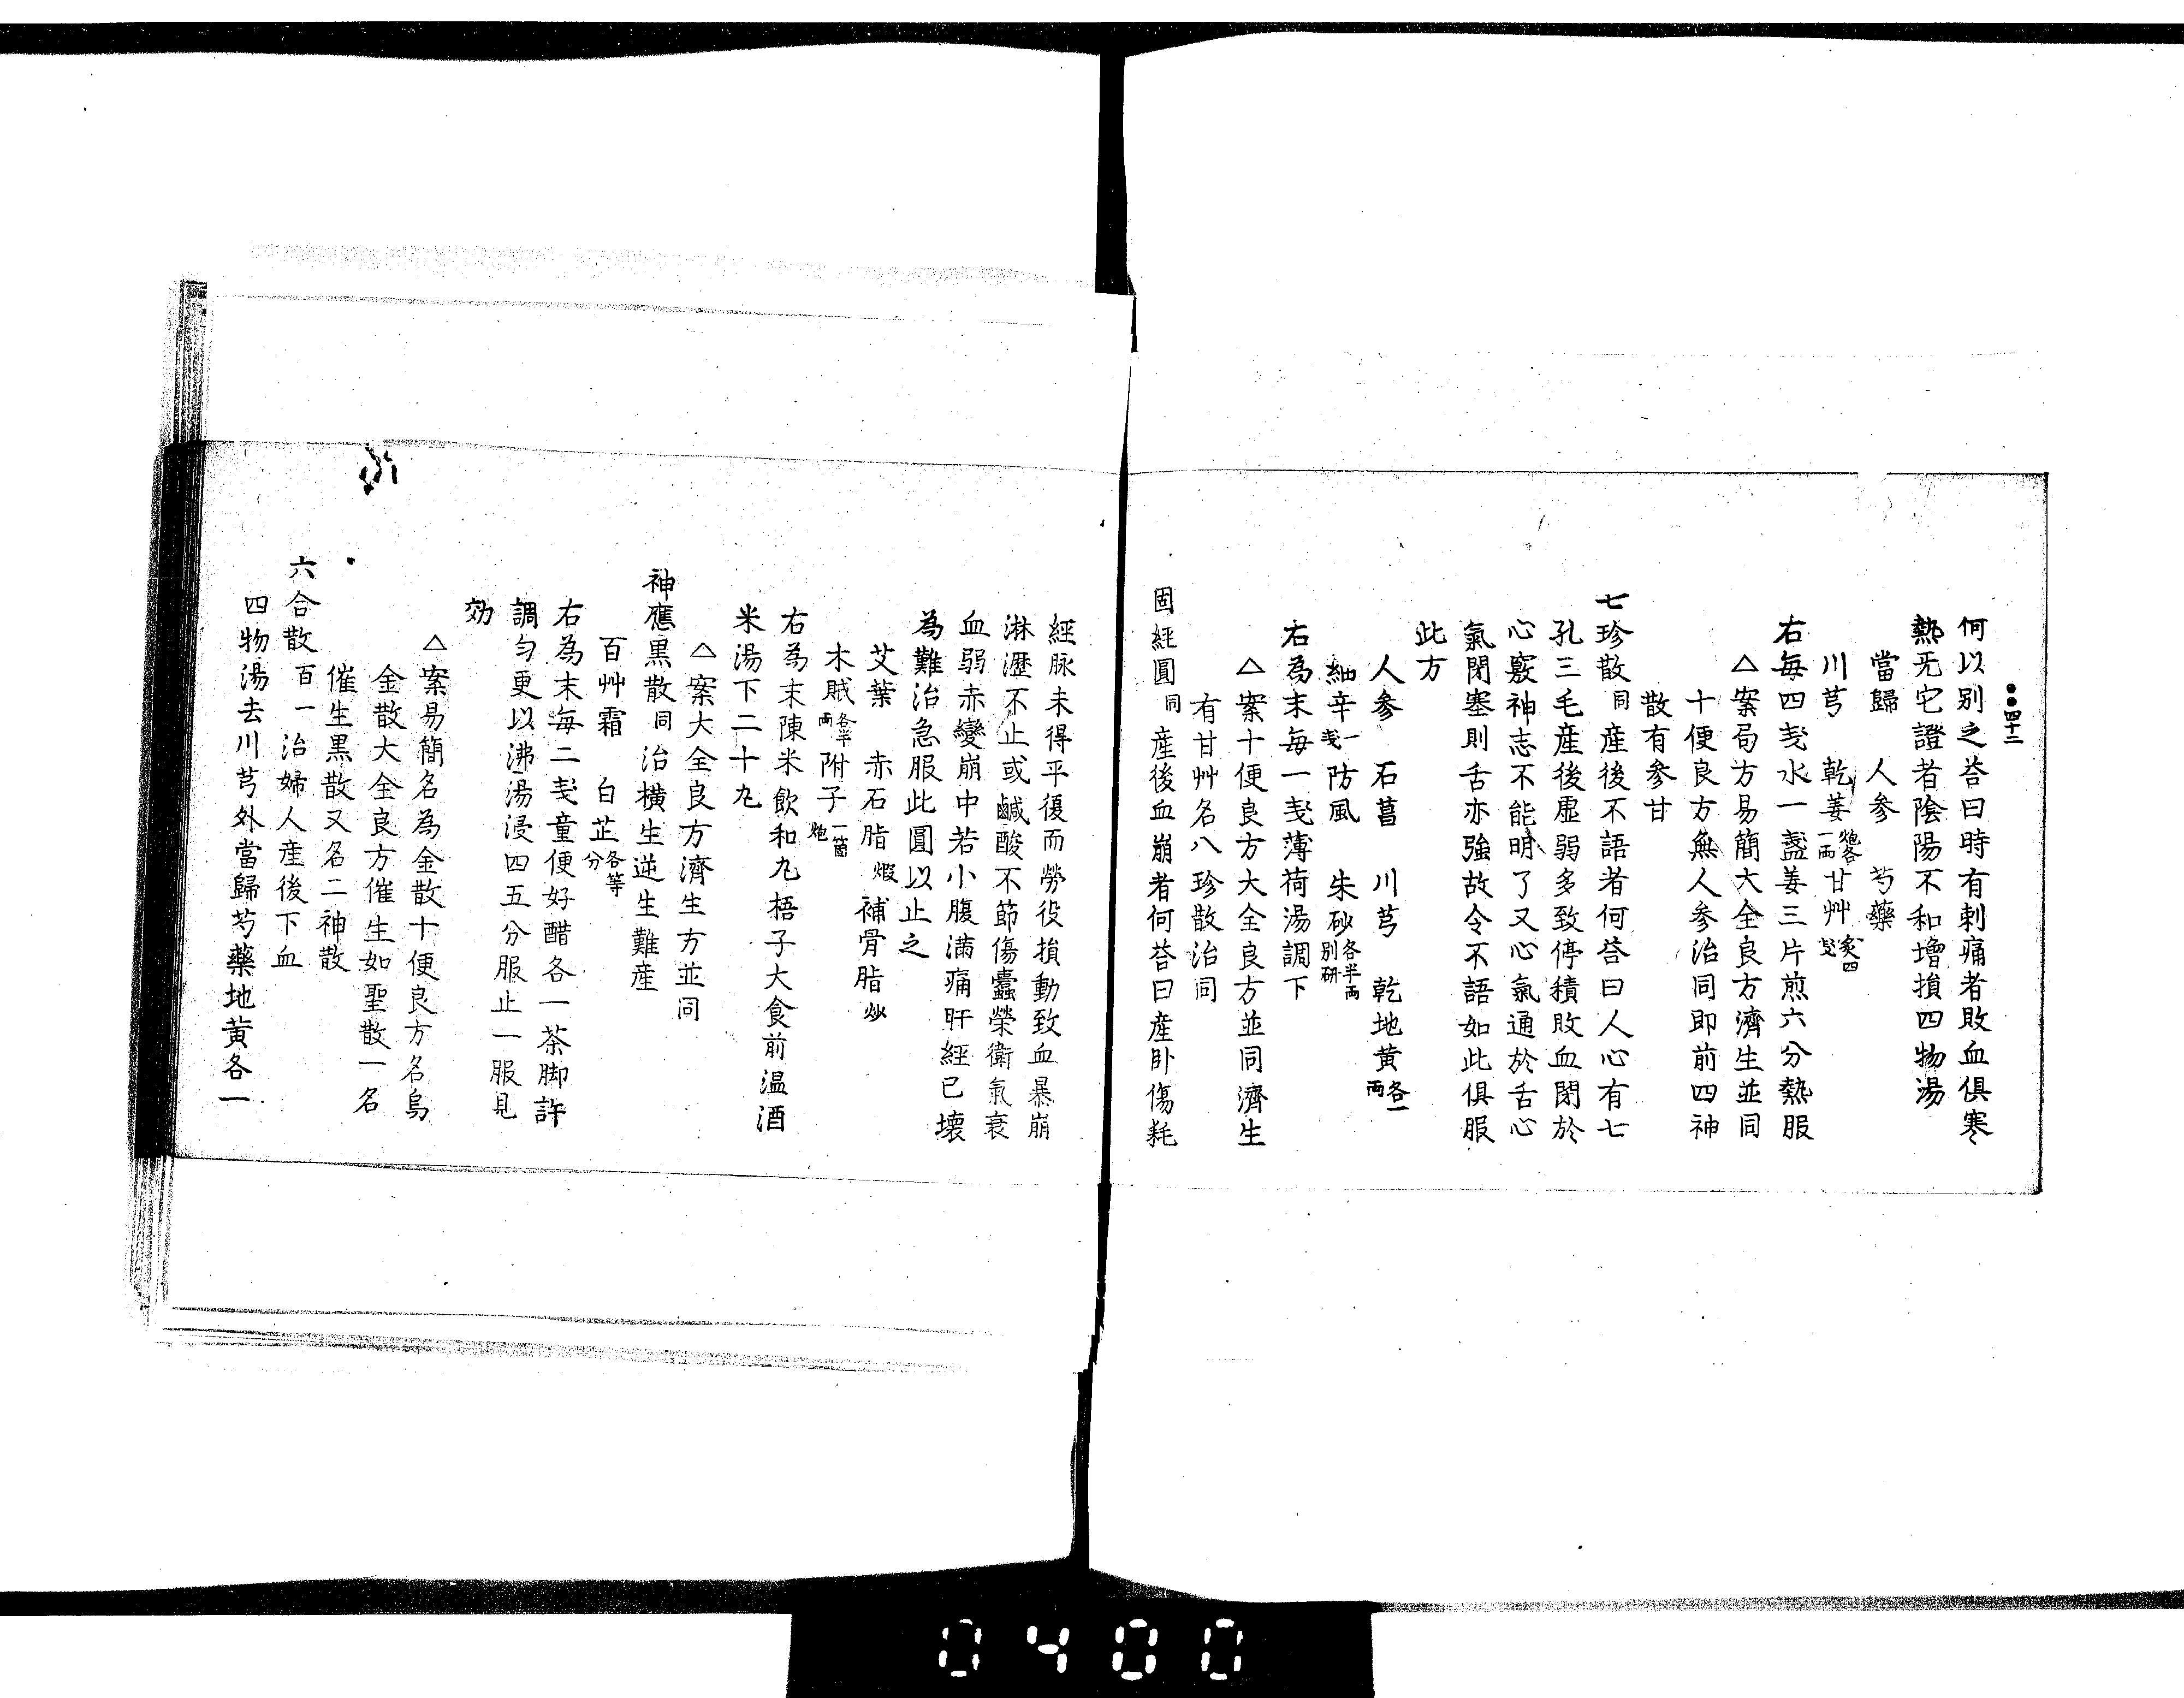 四十二
何以别之荅曰時有刺痛者敗血俱寒
熱无它證者陰陽不和增損四物湯
當歸　人參　芍藥
川芎　乾姜炮各一兩甘艸炙四戔
右每四戔水一盞姜三片煎六分熱服
△案局方易簡大全良方濟生並同
十便良方無人參治同即前四神
散有參甘
七珍散同産後不語者何荅曰人心有七
孔三毛産後虛弱多致停積敗血閉於
心竅神志不能明了又心氣通於舌心
氣閉塞則舌亦強故令不語如此俱服
此方
人參　石菖　川芎　乾地黄各一兩
細辛一戔防風　朱砂各半兩別研
右為末每一戔薄荷湯調下
△案十便良方大全良方並同濟生
有甘艸名八珍散治同
固經圓同産後血崩者何荅曰産卧傷耗
經脉未得平復而勞役損動致血暴崩
淋瀝不止或鹹酸不節傷蠹榮衛氣衰
血弱赤變崩中若小腹滿痛肝經已壞
為難治急服此圓以止之
艾葉　赤石脂煆補骨脂炒
木賊各半兩附子一箇炮
右為末陳米飲和丸梧子大食前温酒
米湯下二十丸
△案大全良方濟生方並同
神應黒散同治横生逆生難産
百艸霜　白芷各等分
右為末每二戔童便好醋各一茶脚許
調匀更以沸湯浸四五分服止一服見
効
△案易簡名為金散十便良方名烏
金散大全良方催生如聖散一名
催生黒散又名二神散
六合散百一治婦人産後下血
四物湯去川芎外當歸芍藥地黄各一
0400